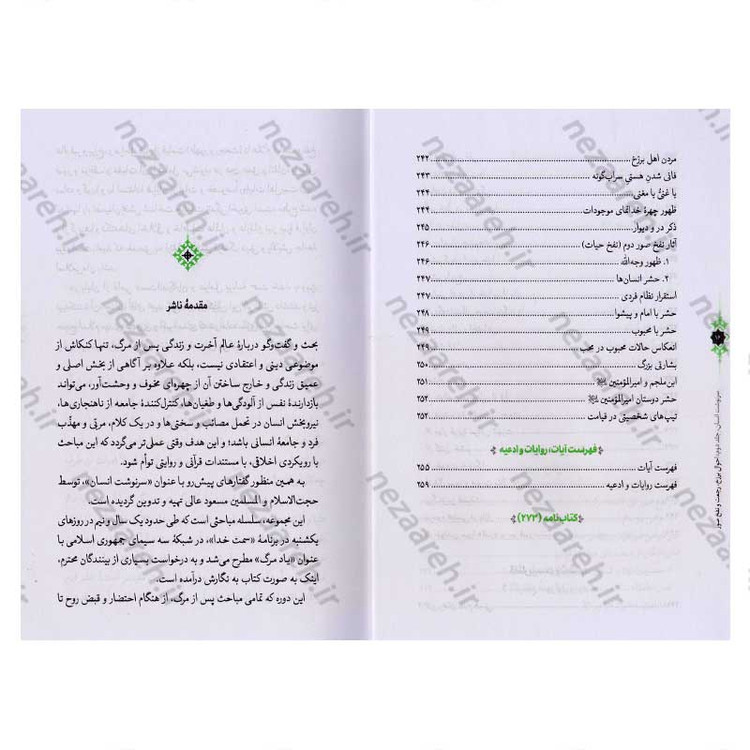 مردن اهل برزخ ... ۲۴۲
فانی شدنِ هستیِ سراب‌گونه ... ۲۴۳
یا غنیُّ یا مغنی ... ۲۴۴
ظهور چهرهٔ خدانمای موجودات ... ۲۴۴
ذکر در و دیوار ... ۲۴۵
آثار نفخ صور دوم (نفخ حیات) ... ۲۴۶
۱. ظهور وجه‌الله ... ۲۴۶
۲. حشر انسان‌ها ... ۲۴۶
استقرار نظام فردی ... ۲۴۷
حشر با امام و پیشوا ... ۲۴۸
حشر با محبوب ... ۲۴۹
انعکاس حالات محبوب در محب ... ۲۴۹
بشارتی بزرگ ... ۲۵۰
ابن‌ملجم و امیرالمؤمنین ... ۲۵۱
حشر دوستان امیرالمؤمنین ... ۲۵۲
تیپ‌های شخصیتی در قیامت ... ۲۵۲
فهرست آیات، روایات و ادعیه
فهرست آیات ... ۲۵۵
فهرست روایات و ادعیه ... ۲۵۹
کتاب‌نامه (۲۷۳)
سرنوشت انسان، جلد دوم: احوال برزخ، رجعت و نفخ صور
مقدمهٔ ناشر
بحث و گفت‌وگو دربارهٔ عالم آخرت و زندگی پس از مرگ، تنها کنکاش از
موضوعی دینی و اعتقادی نیست، بلکه علاوه بر آگاهی از بخش اصلی و
عمیق زندگی و خارج ساختن آن از چهره‌ای مخوف و وحشت‌آور، می‌تواند
بازدارندهٔ نفس از آلودگی‌ها و طغیان‌ها، کنترل‌کنندهٔ جامعه از ناهنجاری‌ها،
نیروبخش انسان در تحمل مصائب و سختی‌ها و در یک کلام، مربّی و مهذّب
فرد و جامعهٔ انسانی باشد؛ و این هدف وقتی عملی‌تر می‌گردد که این مباحث
با رویکردی اخلاقی، با مستندات قرآنی و روایتی توأم شود.
به همین منظور گفتارهای پیش‌رو با عنوان «سرنوشت انسان»، توسط
حجت‌الاسلام و المسلمین مسعود عالی تهیه و تدوین گردیده است.
این مجموعه، سلسله مباحثی است که طی حدود یک سال و نیم در روزهای
یکشنبه در برنامهٔ «سمت خدا»، در شبکهٔ سه سیمای جمهوری اسلامی با
عنوان «یاد مرگ» مطرح می‌شد و به درخواست بسیاری از بینندگان محترم،
اینک به صورت کتاب به نگارش درآمده است.
این دوره که تمامی مباحث پس از مرگ، از هنگام احتضار و قبض روح تا
nezaareh.ir